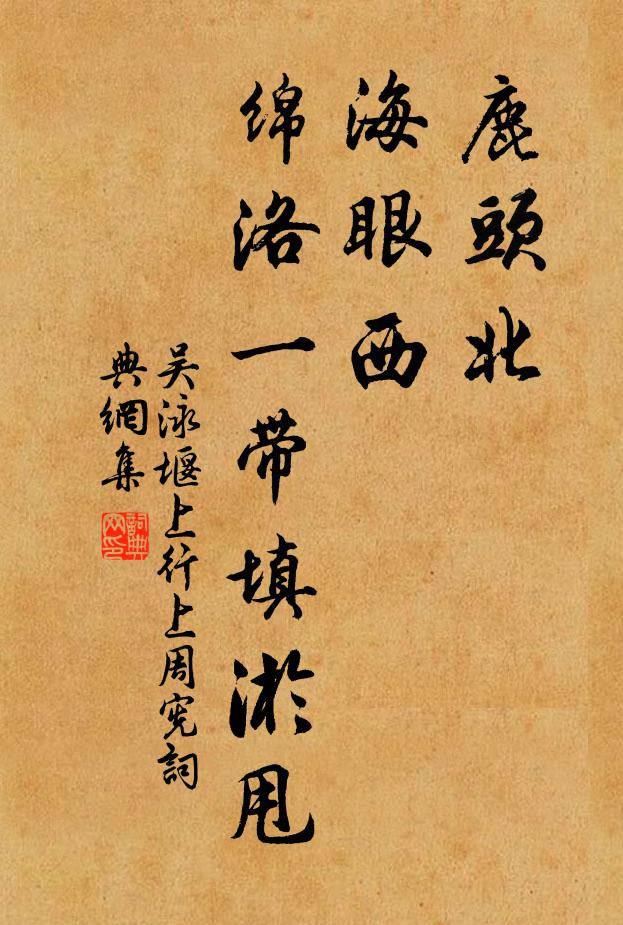 鹿頭北
海眼西
綿洛一帶填淤甩
吴泳堰上行上周宪詞
典網集
詞典网印